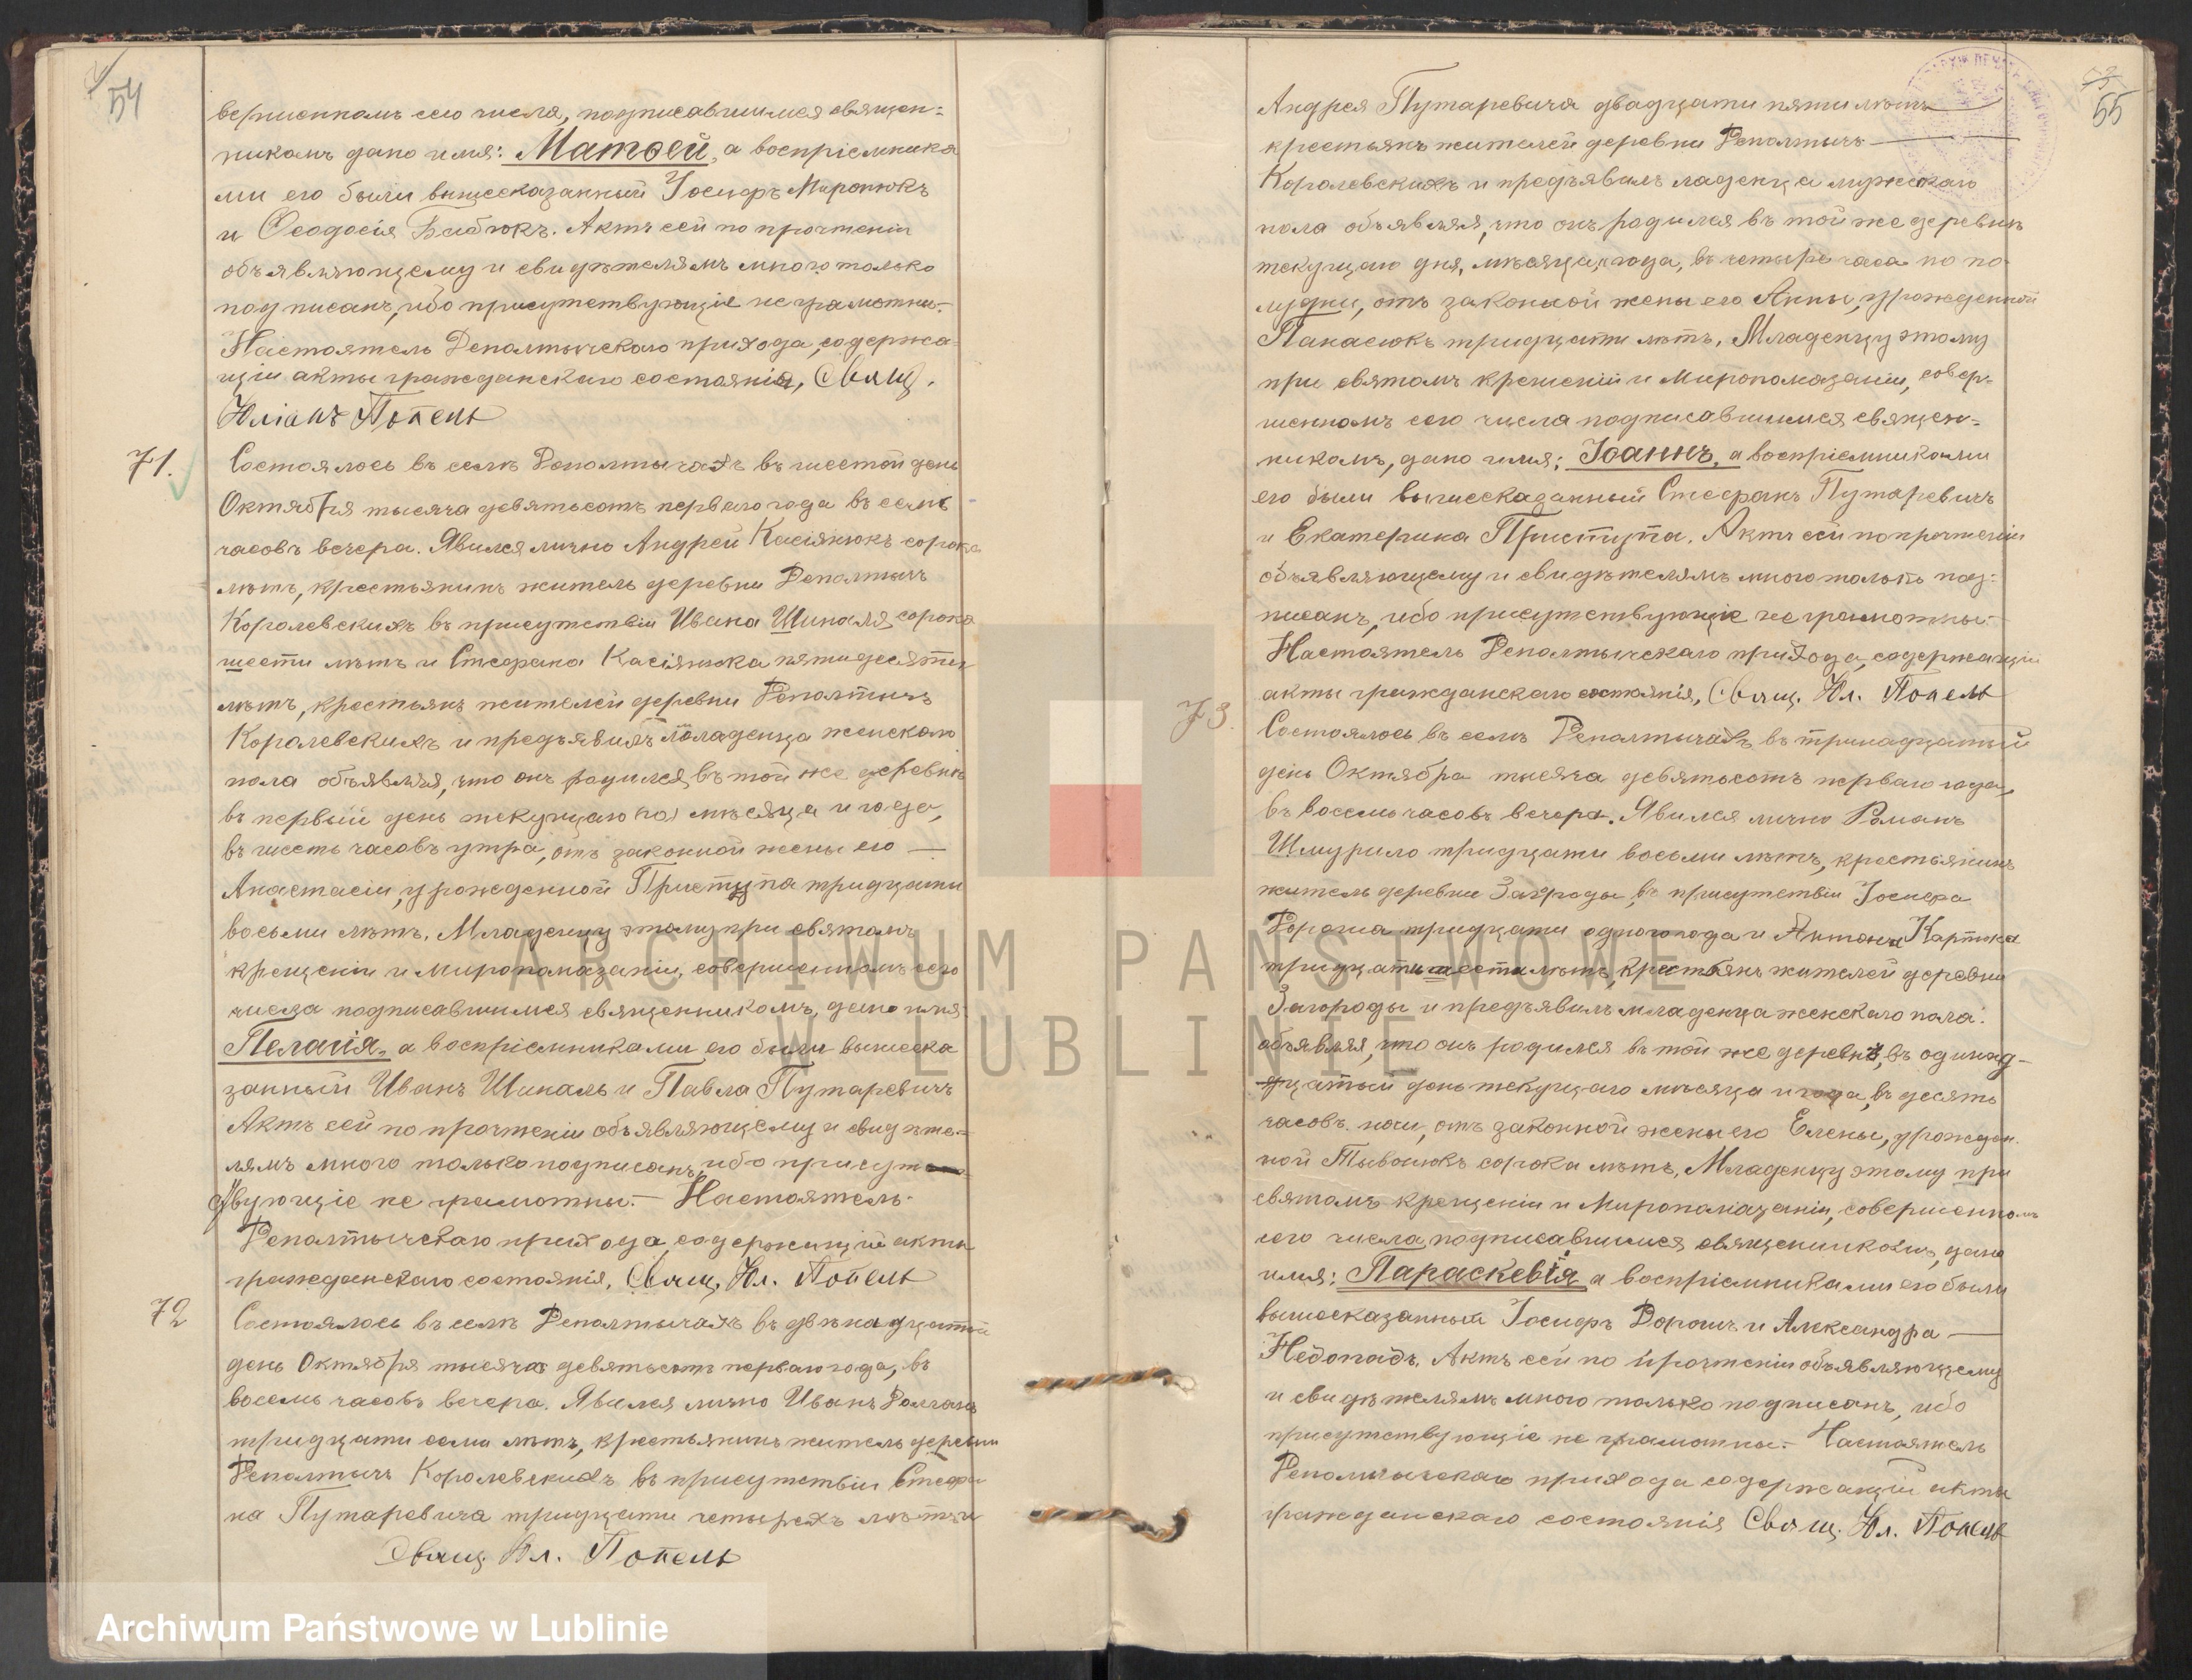 54
вершенномъ сего числа, подписавшимся священ=
никомъ дано имя: Матѳей, а воспріемника
ми его были вышесказанный Іосифъ Миронюкъ
и Ѳеодосія Бабюкъ. Актъ сей по прочтеніи
объявляющему и свидѣтелямъ мною только
подписанъ, ибо присутствующіе неграмотны.-
Настоятель Реполтычскаго прихода, содержа
щій акты гражданскаго состоянія, Свящ.
Юліанъ Попель
71.
Состоялось въ селѣ Реполтычахъ въ шестой день
Октября тысяча девятьсотъ перваго года въ семь
часовъ вечера. Явился лично Андрей Касіянюкъ сорока
лѣтъ, крестьянинъ житель деревни Реполтычъ
Королевскихъ въ присутствіи Ивана Шиналя сорока
шести лѣтъ и Стефана Касіянюка пятидесяти
лѣтъ, крестьянъ жителей деревни Реполтычъ
Королевскихъ и предъявилъ младенца женскаго
пола объявляя, что онъ родился въ той же деревнѣ
въ первый день текущаго мѣсяца и года,
въ шесть часовъ утра, отъ законной жены его —
Анастасіи, урожденной Приступа тридцати
восьми лѣтъ. Младенцу этому при святомъ
крещеніи и Миропомазаніи, совершенномъ сего
числа подписавшимся священникомъ, дано имя:
Пелагія, а воспріемниками его были вышеска
занный Иванъ Шиналь и Павла Путаревичъ
Актъ сей по прочтеніи объявляющему и свидѣте=
лямъ мною только подписанъ, ибо присутс
твующіе неграмотны.- Настоятель
Реполтычскаго прихода, содержащій акты
гражданскаго состоянія, Свящ. Юл. Попель
72
Состоялось въ селѣ Реполтычахъ въ двѣнадцатый
день Октября тысяча девятьсотъ перваго года, въ
восемь часовъ вечера. Явился лично Иванъ
тридцати семи лѣтъ, крестьянинъ житель деревни
Реполтычъ Королевскихъ въ присутствіи Стефа
на Путаревича тридцати четырехъ лѣтъ и
Свящ. Юл. Попель
55
Андрея Путаревича двадцати пяти лѣтъ
крестьянъ жителей деревни Реполтычъ —
Королевскихъ и предъявилъ младенца мужескаго
пола объявляя, что онъ родился въ той же деревнѣ
текущаго дня, мѣсяца, года, въ четыре часа по по
лудни, отъ законной жены его Анны, урожденной
Панасюкъ тридцати лѣтъ. Младенцу этому
при святомъ крещеніи и Миропомазаніи, совер=
шенномъ сего числа подписавшимся священ=
никомъ, дано имя: Іоаннъ, а воспріемниками
его были вышесказанный Стефанъ Путаревичъ
и Екатерина Приступа. Актъ сей по прочтеніи
объявляющему и свидѣтелямъ мною только под=
писанъ, ибо присутствующіе неграмотны.-
Настоятель Реполтычскаго прихода, содержащій
акты гражданскаго состоянія, Свящ. Юл. Попель
73.
Состоялось въ селѣ Реполтычахъ въ тринадцатый
день Октября тысяча девятьсотъ перваго года,
въ восемь часовъ вечера. Явился лично Романъ
Шмурило тридцати восьми лѣтъ, крестьянинъ
житель деревни Загроды, въ присутствіи Іосифа
Дороша тридцати одного года и Антона Картюка
тридцати шести лѣтъ, крестьянъ жителей деревни
Загороды и предъявилъ младенца женскаго пола.
объявляя, что онъ родился въ той же деревнѣ, въ одинад-
цатый день текущаго мѣсяца и года, въ десять
часовъ ночи, отъ законной жены его Елены, урожден.
ной сорока лѣтъ. Младенцу этому при
святомъ крещеніи и Миропомазаніи, совершенномъ
сего числа, подписавшимся священникомъ, дано
имя: Параскевія а воспріемниками его были
вышесказанный Іосифъ Дорошъ и Александра —
Недопадъ. Актъ сей по прочтеніи объявляющему
и свидѣтелямъ мною только подписанъ, ибо
присутствующіе неграмотны.- Настоятель
Реполтычскаго прихода содержащій акты
гражданскаго состоянія Свящ. Юл. Попель
ARCHIWUM PAŃSTWOWE
W LUBLINIE
Archiwum Państwowe w Lublinie